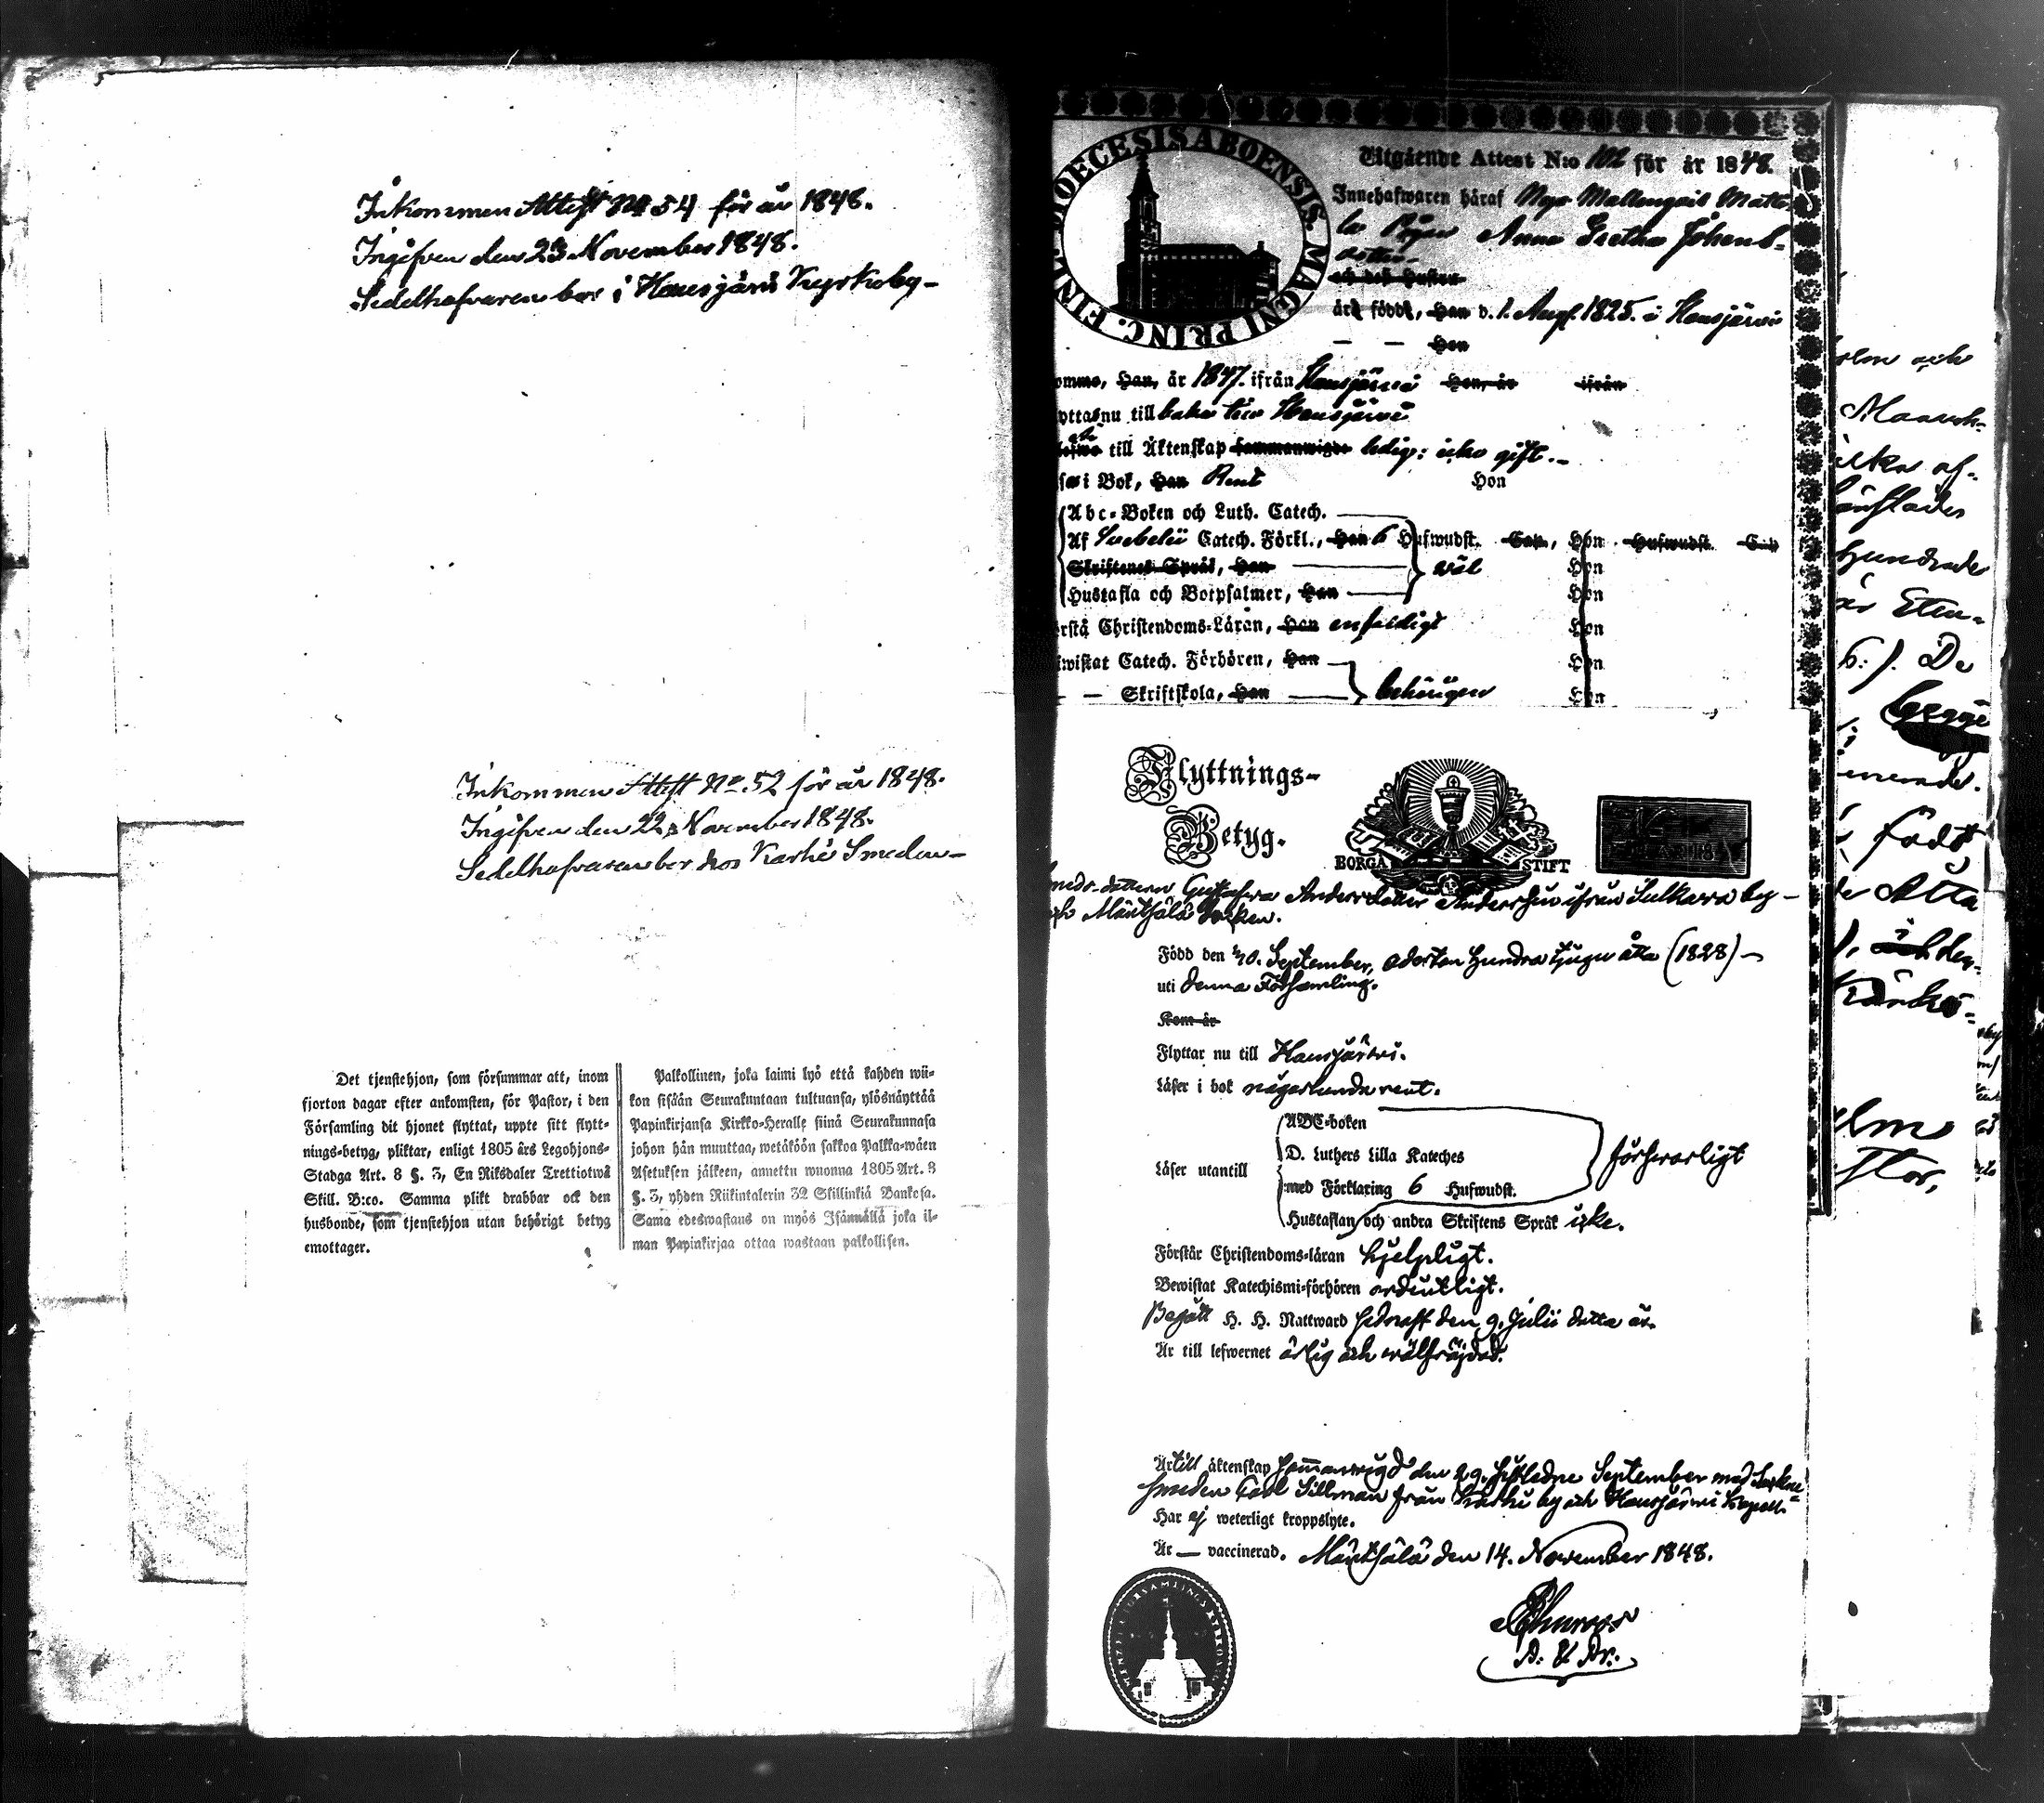 Inkommen Attest No 54 för år 1848.
Ingifven den 23 November 1848.
Sedelhafvaren bor i Hausjärvi Kyrkoby-
Inkommen Attest No. 52 för år 1848.
Ingifven den 22 November 1848.
Sedelhafvaren bor hos Karhi Smeden-
Det tjenstehjon, som försummar att, inom
fjorton dagar efter ankomsten, för Pastor, i den
Församling dit hjonet flyttat, uppte sitt flytt-
nings-betyg, pliktar, enligt 1805 års Legohjons-
Stadga Art. 8 §. 3, En Riksdaler Trettiotwå
Skill. B:co. Samma plikt drabbar ock den
husbonde, som tjenstehjon utan behörigt betyg
emottager.
Palkollinen, joka laimi lyö että kahden wii-
kon sisään Seurakuntaan tultuansa, ylösnäyttää
Papinkirjansa Kirkko-Heralle siinä Seurakunnasa
johon hän muuttaa, wetäköön sakkoa Palkka-wäen
Asetuksen jälkeen, annettu wuonna 1805 Art. 8
§. 3, yhden Riikintalerin 32 Skillinkiä Bankosa.
Sama edeswastaus on myös Isännällä joka il-
man Papinkirjaa ottaa wastaan palkollisen.
DIOECESIS ABOENSIS. MAGNI PRINC. FINL.
Utgående Attest N:o 102 för år 1848.
Innehafwaren häraf
Anna Greta Johans-
dotter
och des Hustru
äro födde, Han d. 1. Aug. 1825. i Hausjärvi
— — Hon
omme, Han, år 1847. ifrån Hausjärvi Hon, år ifrån
yttas nu till baka till Hausjärvi
till Äktenskap sammanwigde ledig: icke gift.-
i Bok, Han Rent Hon
Abc-Boken och Luth. Catech.
Af Svebelii Catech. Förkl., Han 6 Hufwudst. Cap, Hon Hufwudst. Cap
Skriftenes Språk, Han väl Hon
Hustafla och Botpsalmer, Han Hon
rstå Christendoms-Läran, Han enfaldigt Hon
wistat Catech. Förhören, Han Hon
— — Skriftskola, Han behörigen Hon
Flyttnings-
Betyg.
BORGÅ STIFT
meds-dottern Gustafva Andersdotter Andersin ifrån Sulkava by-
ch Mäntsälä Socken.
Född den 10. September, aderton hundra tjugu åtta (1828) -
uti denna Församling.
Kom år
Flyttar nu till Hausjärvi.
Läser i bok någorlunda rent.
Läser utantill
ABC-boken
D. Luthers Lilla Kateches
med Förklaring 6 Hufwudst.
försvarligt
Hustaflan och andra Skriftens Språk icke.
Förstår Christendoms-läran hjelpligt.
Bewistat Katechismi-förhören ordentligt.
Begått H. H. Nattward sednast den 9. Julii detta år.
Är till lefwernet ärlig och wälfräjdad.
Är till äktenskap sammanvigd den 29. sistledne September med
Smeden Carl Sillman från Karhi by och Hausjärvi Kapell.
Har ej weterligt kroppslyte.
Är — vaccinerad. Mäntsälä den 14. November 1848.
olm och
hundrade
De
född
Åtta